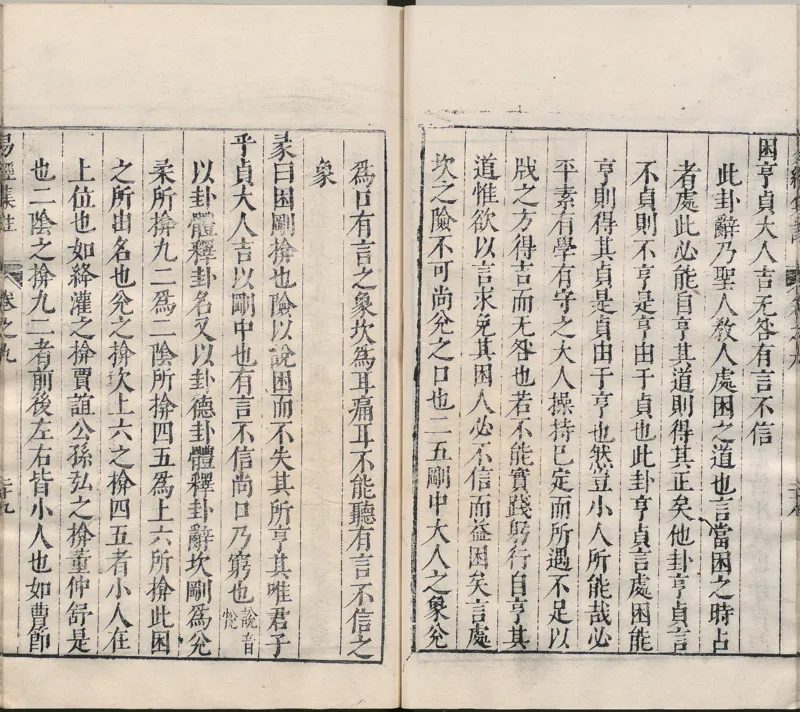 困亨貞大人吉无咎有言不信
此卦辭乃聖人敎人處困之道也言當困之時占
者處此必能自亨其道則得其正矣他卦亨貞言
不貞則不亨是亨由于貞也此卦亨貞言處困能
亨則得其貞是貞由于亨也然豈小人所能哉必
平素有學有守之大人操持已定而所遇不足以
戕之方得吉而无咎也若不能實踐躬行自亨其
道惟欲以言求免其困人必不信而益困矣言處
坎之險不可尚兊之口也二五剛中大人之象兊
爲口有言之象坎爲耳痛耳不能聽有言不信之
象
彖曰困剛揜也險以說困而不失其所亨其唯君子
乎貞大人吉以剛中也有言不信尚口乃窮也說音悅
以卦體釋卦名又以卦德卦體釋卦辭坎剛爲兊
柔所揜九二爲二陰所揜四五爲上六所揜此困
之所由名也兊之揜坎上六之揜四五者小人在
上位也如絳灌之揜賈誼公孫弘之揜董仲舒是
也二陰之揜九二者前後左右皆小人也如曹節
易經集註 卷之九